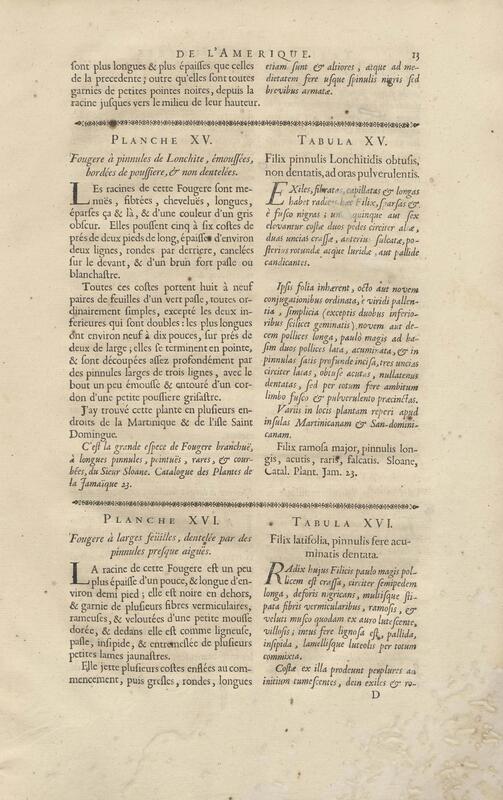 DE L'AMERIQUE. 13
sont plus longues & plus épaisses que celles
de la precedente; outre qu'elles sont toutes
garnies de petites pointes noires, depuis la
racine jusques vers le milieu de leur hauteur.
PLANCHE XV.
Fougere à pinnules de Lonchite, émoussées,
bordées de poussiere, & non dentelées.
LEs racines de cette Fougere sont me-
nuës, fibrées, chevelues, longues,
éparses çà & là, & d'une couleur d'un gris
obscur. Elles poussent cinq à six costes de
prés de deux pieds de long, épaisses d'environ
deux lignes, rondes par derriere, canelées
sur le devant, & d'un brun fort pasle ou
blanchastre.
Toutes ces costes portent huit à neuf
paires de feuilles d'un vert pasle, toutes or-
dinairement simples, excepté les deux in-
ferieures qui sont doubles: les plus longues
ont environ neuf à dix pouces, sur prés de
deux de large; elles se terminent en pointe,
& sont découpées assez profondément par
des pinnules larges de trois lignes, avec le
bout un peu émoussé & entouré d'un cor-
don d'une petite poussiere grisastre.
J'ay trouvé cette plante en plusieurs en-
droits de la Martinique & de l'isle Saint
Domingue.
C'est la grande espece de Fougere branchuë,
à longues pinnules, pointuës, rares, & cour-
bées, du Sieur Sloane. Catalogue des Plantes de
la Jamaïque 23.
PLANCHE XVI.
Fougere à larges feüilles, dentelée par des
pinnules presque aiguës.
LA racine de cette Fougere est un peu
plus épaisse d'un pouce, & longue d'en-
viron demi pied; elle est noire en dehors,
& garnie de plusieurs fibres vermiculaires,
rameuses, & veloutées d'une petite mousse
dorée, & dedans elle est comme ligneuse,
pasle, insipide, & entremeslée de plusieurs
petites lames jaunastres.
Elle jette plusieurs costes enflées au com-
mencement, puis gresles, rondes, longues
etiam sunt & altiores, atque ad me-
dietatem fere usque spinulis nigris sed
brevibus armatæ.
TABULA XV.
Filix pinnulis Lonchitidis obtusis,
non dentatis, ad oras pulverulentis.
EXiles, fibratas, capillatas & longas
habet radices hæc Filix, sparsas &
è fusco nigras; unde quinque aut sex
elevantur costæ duos pedes circiter altæ,
duas uncias crassæ, anterius sulcatæ, po-
sterius rotundæ atque luridæ, aut pallide
candicantes.
Ipsis folia inhærent, octo aut novem
conjugationibus ordinata, è viridi pallen-
tia, simplicia (exceptis duobus inferio-
ribus scilicet geminatis) novem aut de-
cem pollices longa, paulò magis ad ba-
sim duos pollices lata, acuminata, & in
pinnulas satis profunde incisa, tres uncias
circiter latas, obtuse acutas, nullatenus
dentatas, sed per totum fere ambitum
limbo fusco & pulverulento præcinctas.
Variis in locis plantam reperi apud
insulas Martinicanam & San-domini-
canam.
Filix ramosa major, pinnulis lon-
gis, acutis, raris, falcatis. Sloane,
Catal. Plant. Jam. 23.
TABULA XVI.
Filix latifolia, pinnulis fere acu-
minatis dentata.
RAdix hujus Filicis paulo magis pol-
licem est crassa, circiter semipedem
longa, deforis nigricans, multisque sti-
pata fibris vermicularibus, ramosis, &
veluti musco quodam ex auro lutescente,
villosis; intus fere lignosa est, pallida,
insipida, lamellisque luteolis per totum
commixta.
Costæ ex illa prodeunt perplures ad
initium tumescentes, dein exiles & ro-
D